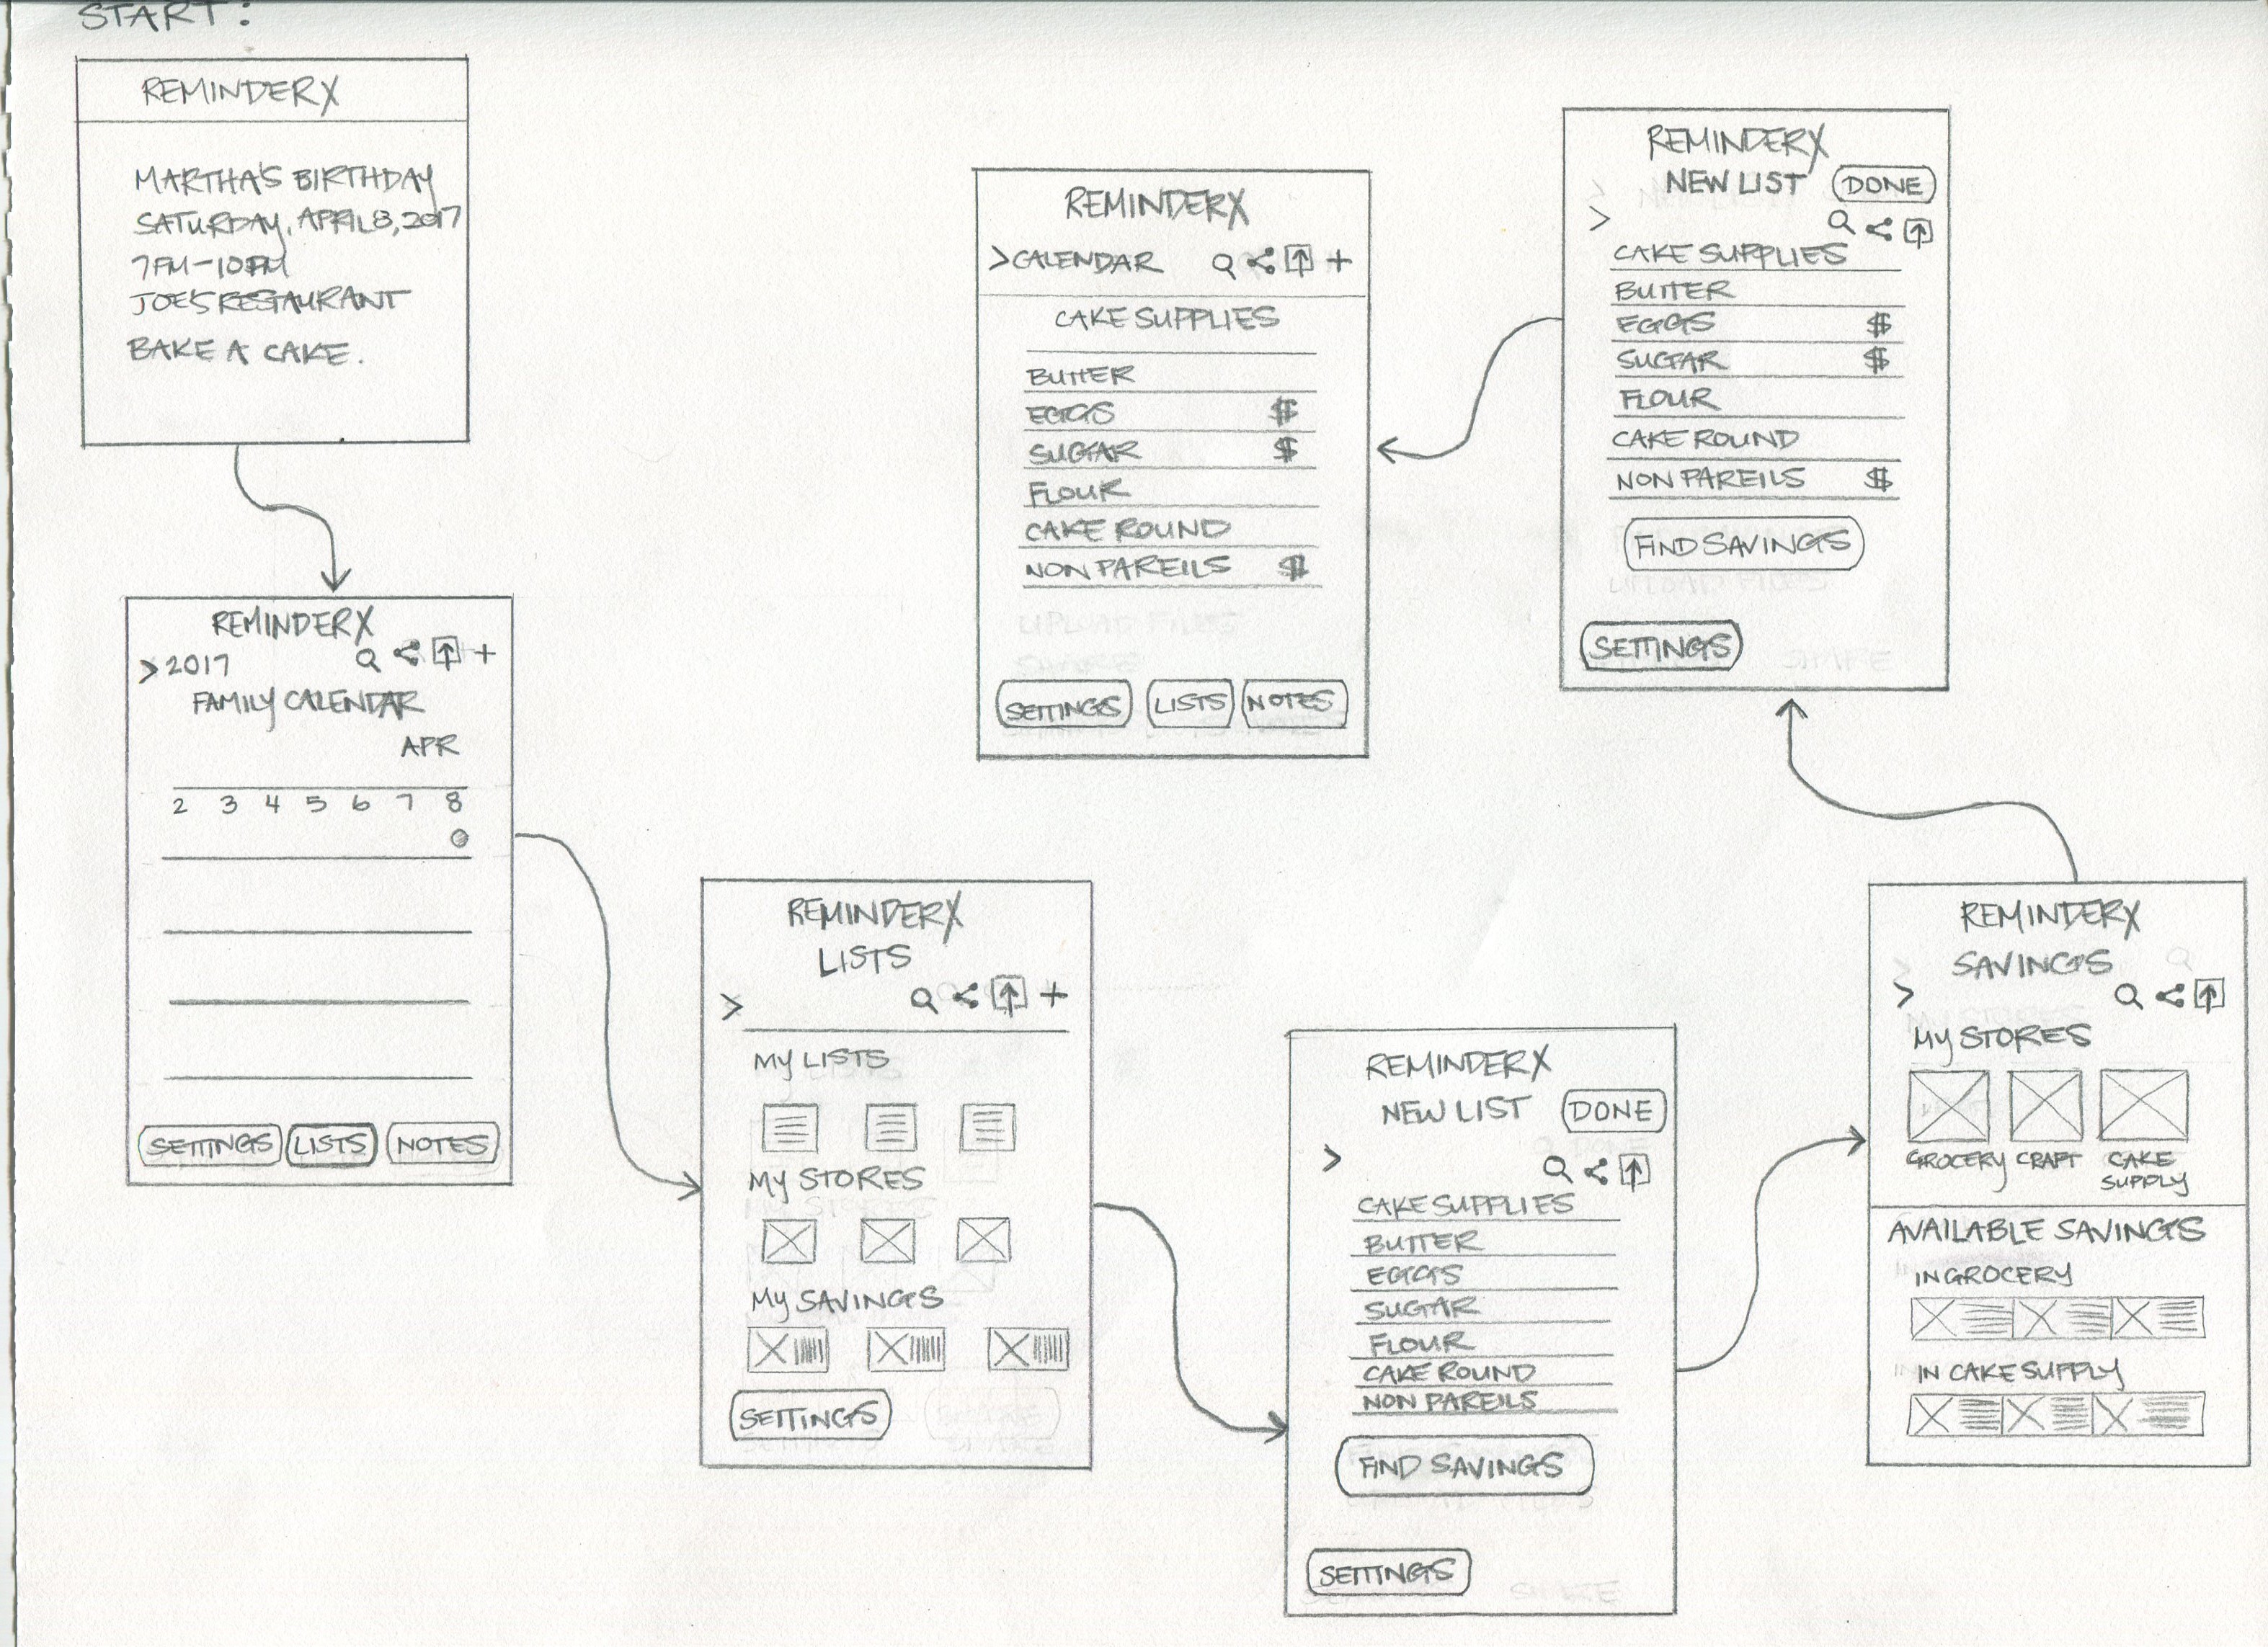 START:
REMINDERX
MARTHA'S BIRTHDAY
SATURDAY, APRIL 8, 2017
7PM-10PM
JOE'S RESTAURANT
BAKE A CAKE.
REMINDERX
> 2017 +
FAMILY CALENDAR
APR
2 3 4 5 6 7 8
SETTINGS LISTS NOTES
REMINDERX
LISTS
> +
MY LISTS
MY STORES
MY SAVINGS
SETTINGS
REMINDERX
NEW LIST DONE
>
CAKE SUPPLIES
BUTTER
EGGS
SUGAR
FLOUR
CAKE ROUND
NON PAREILS
FIND SAVINGS
SETTINGS
REMINDERX
SAVINGS
>
MY STORES
GROCERY CRAFT CAKE SUPPLY
AVAILABLE SAVINGS
IN GROCERY
IN CAKE SUPPLY
REMINDERX
NEW LIST DONE
>
CAKE SUPPLIES
BUTTER
EGGS $
SUGAR $
FLOUR
CAKE ROUND
NON PAREILS $
FIND SAVINGS
SETTINGS
REMINDERX
> CALENDAR +
CAKE SUPPLIES
BUTTER
EGGS $
SUGAR $
FLOUR
CAKE ROUND
NON PAREILS $
SETTINGS LISTS NOTES